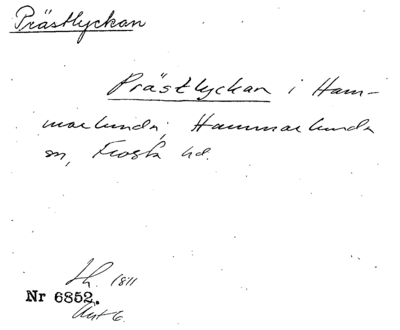 Prästlyckan
Prästlyckan i Ham-
marlunda, Hammarlunda
sn, Frosta hd.
Lh. 1811
Nr 6852.
Akt 6.